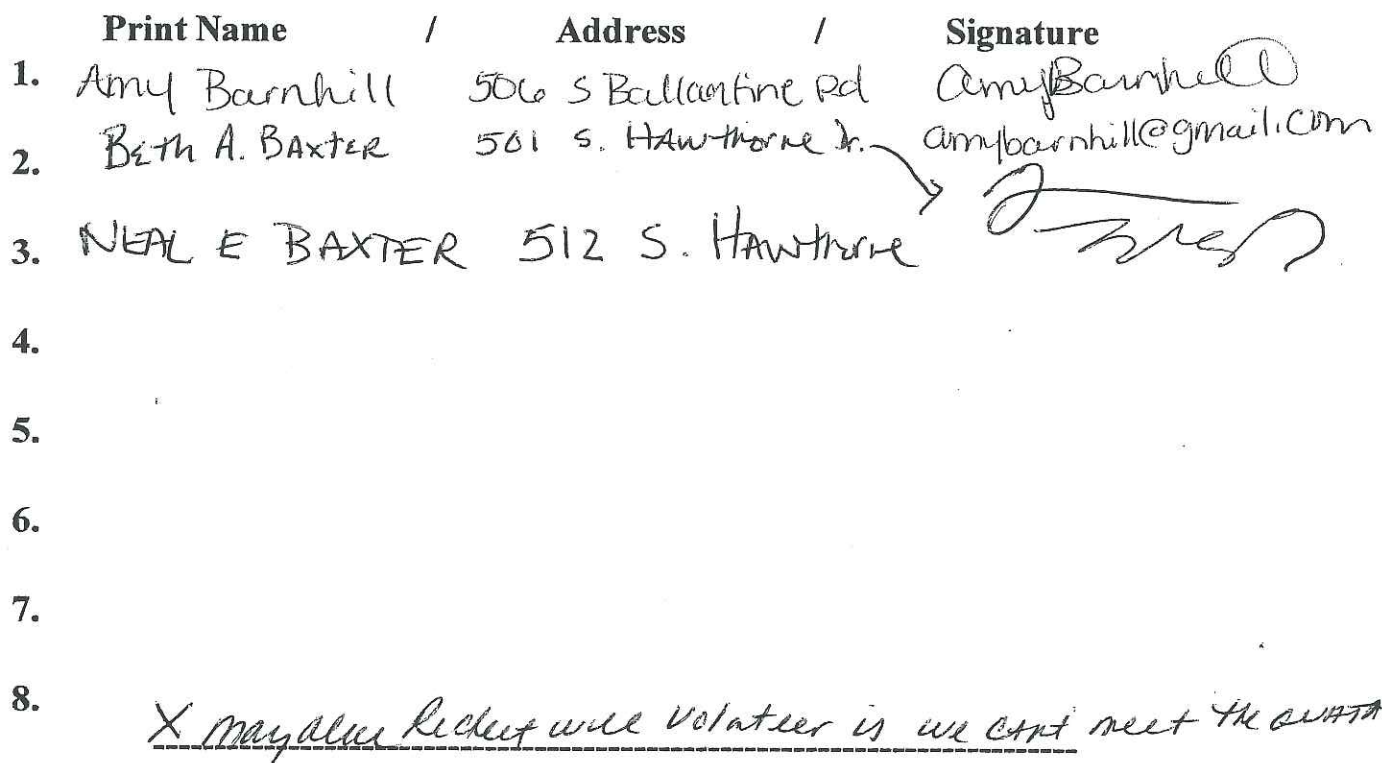 Print Name / Address / Signature
1. Amy Barnhill 506 S Ballantine Rd Amy Barnhill
amybarnhill@gmail.com
2. Beth A. Baxter 501 S. Hawthorne Dr.
3. NEAL E BAXTER 512 S. Hawthorne
4.
5.
6.
7.
8.
X will volateer is we cant meet the